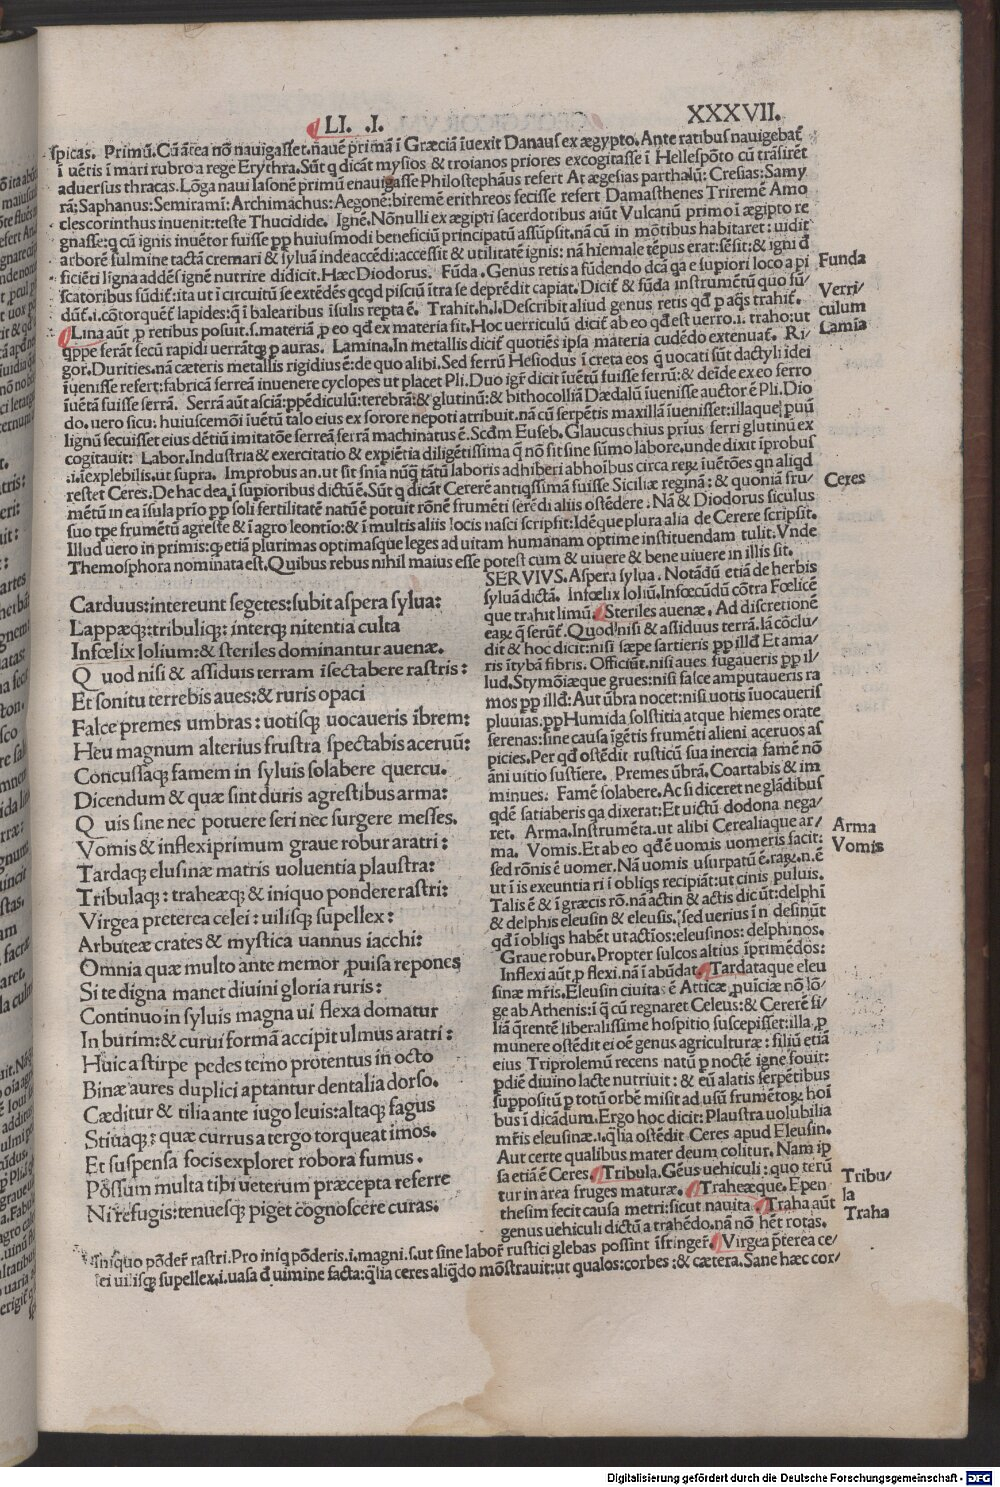 LI. .I.
XXXVII.
spicas. Primũ. Cũ ãtea nõ nauigasset. nauẽ primã ĩ Græciã ĩuexit Danaus ex ægypto. Ante ratibus nauigebat̃
ĩ uẽtis ĩ mari rubro a rege Erythra. Sũt q dicãt mysios & troianos priores excogitasse ĩ Hellespõto cũ trãsirẽt
aduersus thracas. Lõga naui Iasonẽ primũ enauigasse Philostephãus refert At ægesias parthalũ: Cresias: Samy
rã: Saphanus: Semiramĩ: Archimachus: Aegonẽ: biremẽ erithreos fecisse refert Damasthenes Triremẽ Amo
clescorinthus inuenit: teste Thucidide. Ignẽ. Nõnulli ex ægipti sacerdotibus aiũt Vulcanũ primo ĩ ægipto re
gnasse: q cũ ignis inuẽtor fuisse ꝓp huiusmodi beneficiũ principatũ assũpsit. nã cũ in mõtibus habitaret: uidit
arborẽ fulmine tactã cremari & syluã inde accẽdi: accessit & utilitatẽ ignis: nã hiemale tẽpus erat: sẽsit: & igni đ
ficiẽti ligna addẽs ignẽ nutrire didicit. Hæc Diodorus. Fũda. Genus retis a fũdendo dcã qa e supiori loco a pi
scatoribus fũdit̃: ita ut ĩ circuitũ se extẽdẽs qcqd pisciũ ĩtra se deprẽdit capiat. Dicit̃ & fũda instrumẽtũ quo fũ/
dũt̃. i. cõtorquẽt̃ lapides: q̃ ĩ balearibus ĩsulis repta ẽ. Trahit. h. l. Describit aliud genus retis qđ p aq̃s trahit̃.
Lina aũt p retibus posuit. s. materiã p eo qđ ex materia fit. Hoc uerriculũ dicit̃ ab eo qđ est uerro. i. traho: ut
qppe ferãt secũ rapidi uerrãtqꝫ p auras. Lamina. In metallis dicit̃ quotiẽs ipsa materia cudẽdo extenuat̃. Ri/
gor. Durities. nã cæteris metallis rigidius ẽ: de quo alibi. Sed ferrũ Hesiodus ĩ creta eos q̃ uocati sũt dactyli idei
ĩuenisse refert: fabricã ferreã inuenere cyclopes ut placet Pli. Duo igr̃ dicit ĩuẽtũ fuisse ferrũ: & deĩde ex eo ferro
ĩuẽtã fuisse serrã. Serrã aũt asciã: ppẽdiculũ: terebrã: & glutinũ: & bithocolliã Dædalũ ĩuenisse auctor ẽ Pli. Dio
do. uero sicu: huiuscemõi ĩuẽtũ talo eius ex sorore nepoti atribuit. nã cũ serpẽtis maxillã ĩuenisset: illaque puũ
lignũ secuisset eius dẽtiũ imitatõe serreã serrã machinatus ẽ. Scđm Euseb. Glaucus chius prius ferri glutinũ ex
cogitauit: Labor. Industria & exercitatio & expiẽtia diligẽtissima q̃ nõ sit sine sũmo labore. unde dixit ĩprobus
.i. ĩexplebilis. ut supra. Improbus an. ut sit snĩa nũq̃ tãtũ laboris adhiberi ab hoĩbus circa reꝝ iuẽtões qn aliqd
restet Ceres. De hac dea ĩ supioribus dictũ ẽ. Sũt q̃ dicãt Cererẽ antiqssimã fuisse Siciliæ reginã: & quoniã fru/
mẽtũ in ea ĩsula prio pp soli fertilitatẽ natũ ẽ potuit rõnẽ frumẽti serẽdi aliis ostẽdere: Nã & Diodorus siculus
suo tpe frumẽtũ agreste & ĩ agro leontio: & ĩ multis aliis locis nasci scripsit: Idẽque plura alia de Cerere scripsit.
Illud uero in primis: qꝫ etiã plurimas optimasque leges ad uitam humanam optime instituendam tulit. Vnde
Themosphora nominata est. Quibus rebus nihil maius esse potest cum & uiuere & bene uiuere in illis sit.
Carduus: intereunt segetes: subit aspera sylua:
Lappæqꝫ: tribuliqꝫ: interqꝫ nitentia culta
Infœlix lolium: & steriles dominantur auenæ.
Q uod nisi & assiduis terram ĩsectabere rastris:
Et sonitu terrebis aues: & ruris opaci
Falce premes umbras: uotisqꝫ uocaueris ĩbrem:
Heu magnum alterius frustra spectabis aceruũ:
Concussaqꝫ famem in syluis solabere quercu.
Dicendum & quæ sint duris agrestibus arma:
Q uis sine nec potuere seri nec surgere messes.
Vomis & inflexi primum graue robur aratri:
Tardaqꝫ elusinæ matris uoluentia plaustra:
Tribulaqꝫ: traheæqꝫ & iniquo pondere rastri:
Virgea preterea celei: uilisqꝫ supellex:
Arbuteæ crates & mystica uannus iacchi:
Omnia quæ multo ante memor ꝓuisa repones
Si te digna manet diuini gloria ruris:
Continuo in syluis magna ui flexa domatur
In burim: & curui formã accipit ulmus aratri:
Huic a stirpe pedes temo protentus in octo
Binæ aures duplici aptantur dentalia dorso.
Cæditur & tilia ante iugo leuis: altaqꝫ fagus
Stiuaqꝫ: quæ currus a tergo torqueat imos.
Et suspensa focis exploret robora fumus.
Possum multa tibi ueterum præcepta referre
Ni refugis: tenuesqꝫ piget cognoscere curas.
SERVIVS. Aspera sylua. Notãdũ etiã de herbis
syluã dictã. Infœlix loliũ. Infœcũdũ cõtra Fœlicẽ
que trahit limũ. Steriles auenæ. Ad discretionẽ
eaꝝ q̃ serũt̃. Quod nisi & assiduus terrã. Iã cõclu/
dit & hoc dicit: nisi sæpe sartieris pp illđ Et ama/
ris ĩtybã fibris. Officiũt. nisi aues fugaueris pp il/
lud. Stymõiæque grues: nisi falce amputaueris ra
mos pp illđ: Aut ũbra nocet: nisi uotis ĩuocaueris
pluuias. pp Humida solstitia atque hiemes orate
serenas: sine causa ĩgẽtis frumẽti alieni aceruos as
picies. Per qđ ostẽdit rusticũ sua inercia famẽ nõ
ãni uitio sustiere. Premes ũbrã. Coartabis & im
minues: Famẽ solabere. Ac si diceret ne glãdibus
qdẽ satiaberis qa dixerat: Et uictũ dodona nega/
ret. Arma. Instrumẽta. ut alibi Cerealiaque ar/
ma. Vomis. Et ab eo qđ ẽ uomis uomeris facit:
sed rõnis ẽ uomer. Nã uomis usurpatũ ẽ. raꝝ. n. ẽ
ut ĩ is exeuntia ri ĩ obliqs recipiãt: ut cinis puluis.
Talis ẽ & ĩ græcis rõ. nã actin & actis dicũt: delphĩ
& delphis eleusin & eleusis. sed uerius ĩn desinũt
qđ ĩ obliqs habẽt ut actĩos: eleusinos: delphinos.
Graue robur. Propter sulcos altius ĩprimẽdos:
Inflexi aũt p flexi. nã ĩ abũdat. Tardataque eleu
sinæ mr̃is. Eleusin ciuitas ẽ Atticæ ꝓuiciæ nõ lõ/
ge ab Athenis: ĩ q̃ cũ regnaret Celeus: & Cererẽ fi/
liã q̃rentẽ liberalissime hospitio suscepisset: illa p
munere ostẽdit ei oẽ genus agriculturæ: filiũ etiã
eius Triprolemũ recens natũ p noctẽ igne fouit:
p diẽ diuino lacte nutriuit: & eũ alatis serpẽtibus
suppositũ p totũ orbẽ misit ad usũ frumẽtoꝝ hoĩ
bus ĩ dicãdum. Ergo hoc dicit: Plaustra uolubilia
mr̃is eleusinæ. i. q̃lia ostẽdit Ceres apud Eleusin.
Aut certe qualibus mater deum colitur. Nam ip
sa etiã ẽ Ceres. Tribula. Gẽus uehiculi: quo terũ
tur in area fruges maturæ. Traheæque. Epen
thesim fecit causa metri: sicut nauita. Traha aũt
genus uehiculi dictũ a trahẽdo. nã nõ hẽt rotas.
iniquo põder̃ rastri. Pro iniq põderis. i. magni. s. ut sine labor̃ rustici glebas possint ĩfringer̃. Virgea p̃terea ce/
lei uilisqꝫ supellex. i. uasa đ uimine facta: q̃lia ceres aliqdo mõstrauit: ut qualos: corbes: & cætera. Sane hæc cor/
Funda
Verri/
culum
Lamia
Ceres
Arma
Vomis
Tribu/
la
Traha
Digitalisierung gefördert durch die Deutsche Forschungsgemeinschaft - DFG